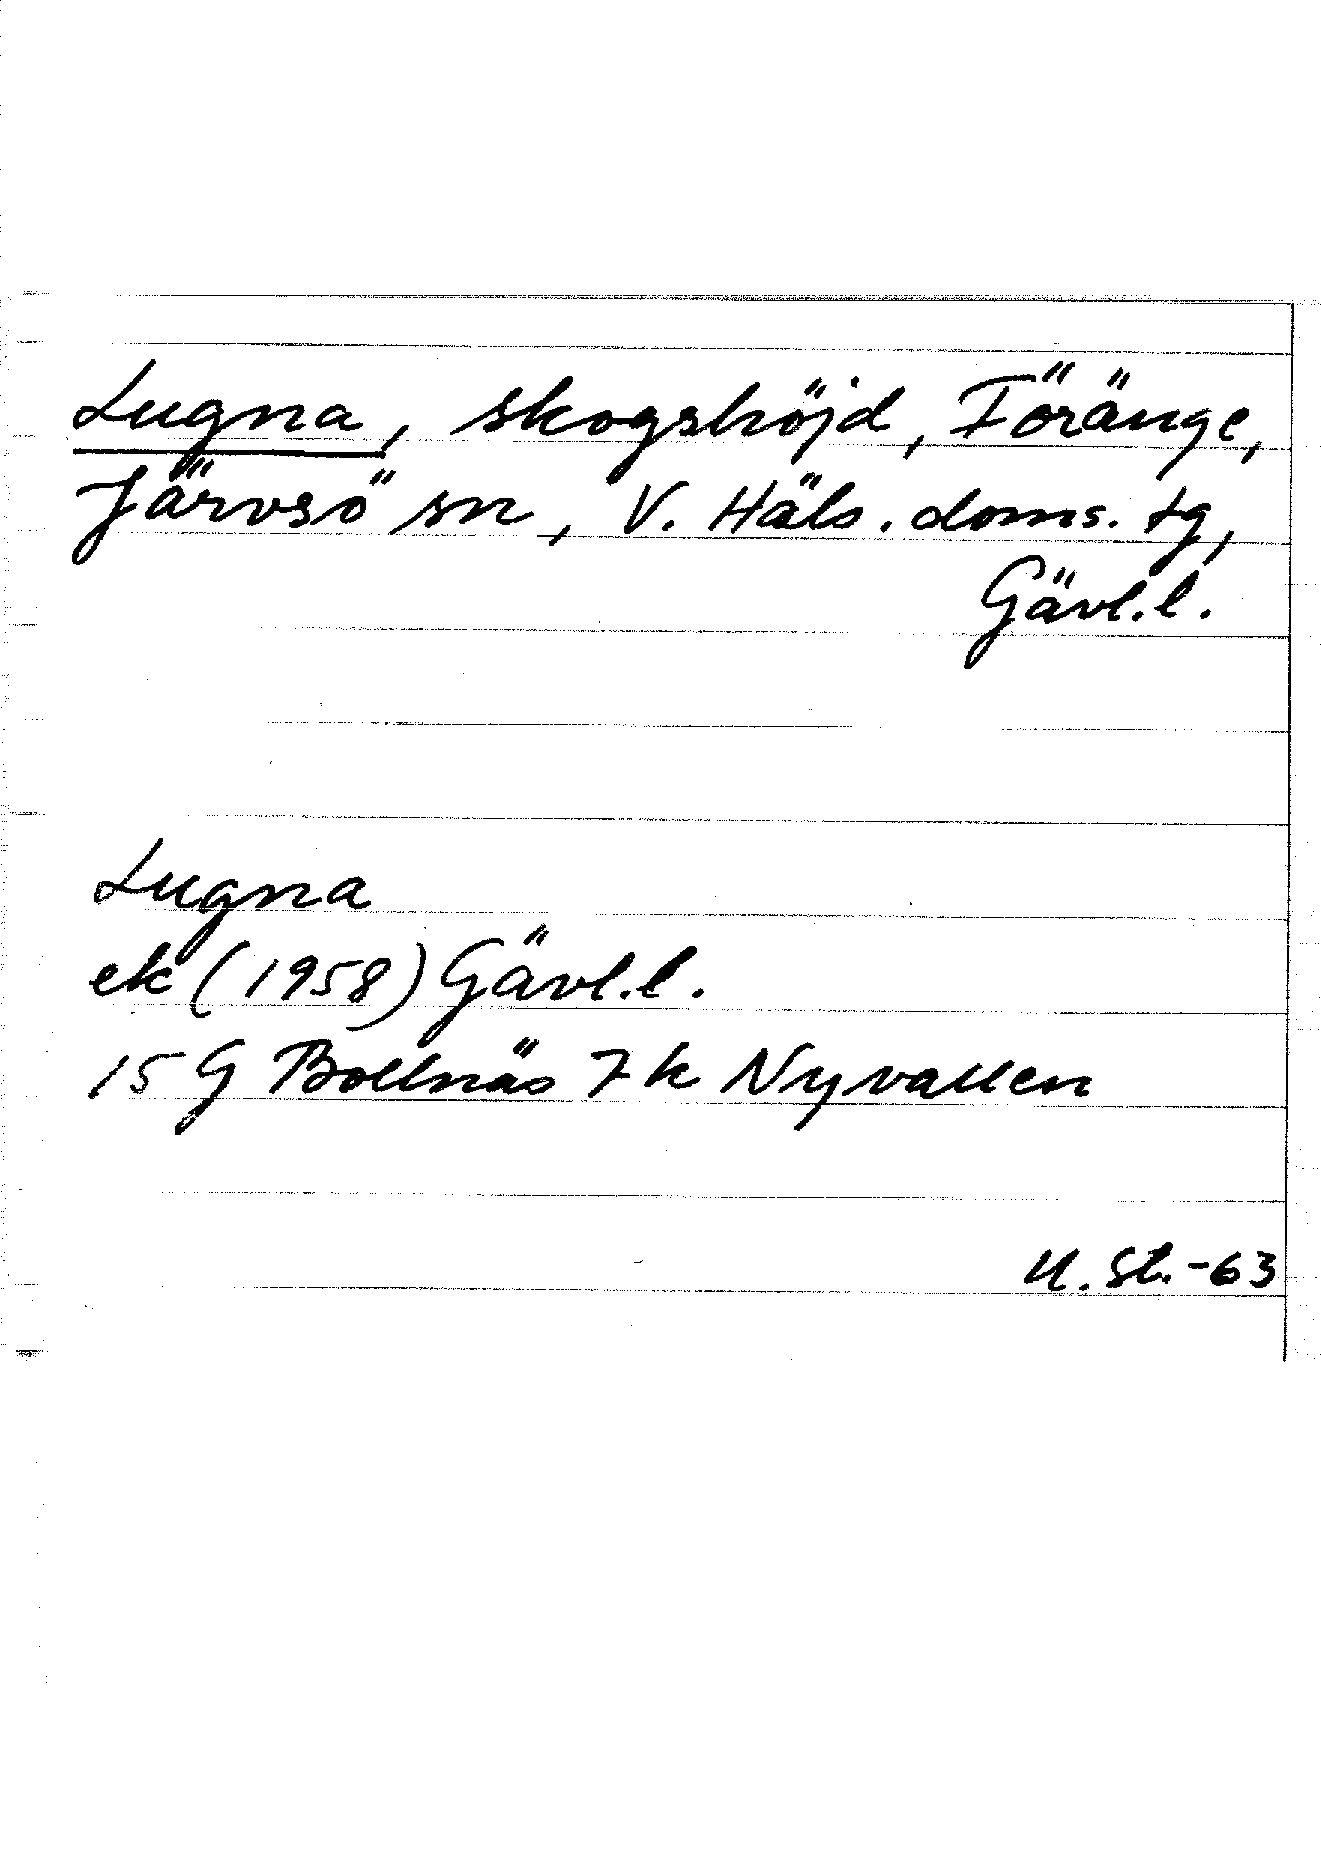 Lugna, skogshöjd, Föränge,
Järvsö sn, V. Häls. doms. tg,
Gävl.l.
Lugna
ek (1958) Gävl.l.
15 G Bollnäs 7 k Nyvallen
U. St.-63